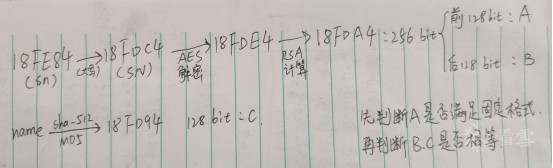 18FE84 →(大写) 18FDC4 →AES解密 18FDE4 →RSA计算 18FDA4:256 bit { 前128bit:A
(sn) (SN) 后128 bit:B
name →sha-512 MD5 18FD94 128 bit:C 先判断A是否满足固定格式.
再判断B.C是否相等